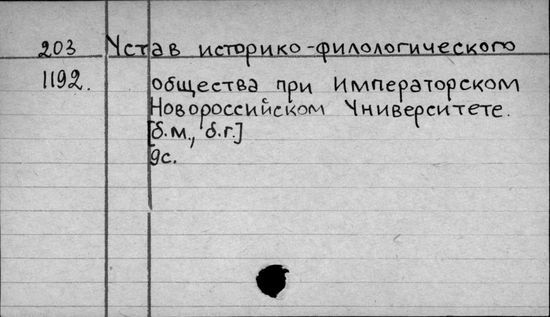 203 Устав историко-филологического
1192. общества при Императорском
Новороссийском Университете.
[б.м., б.г.]
9с.